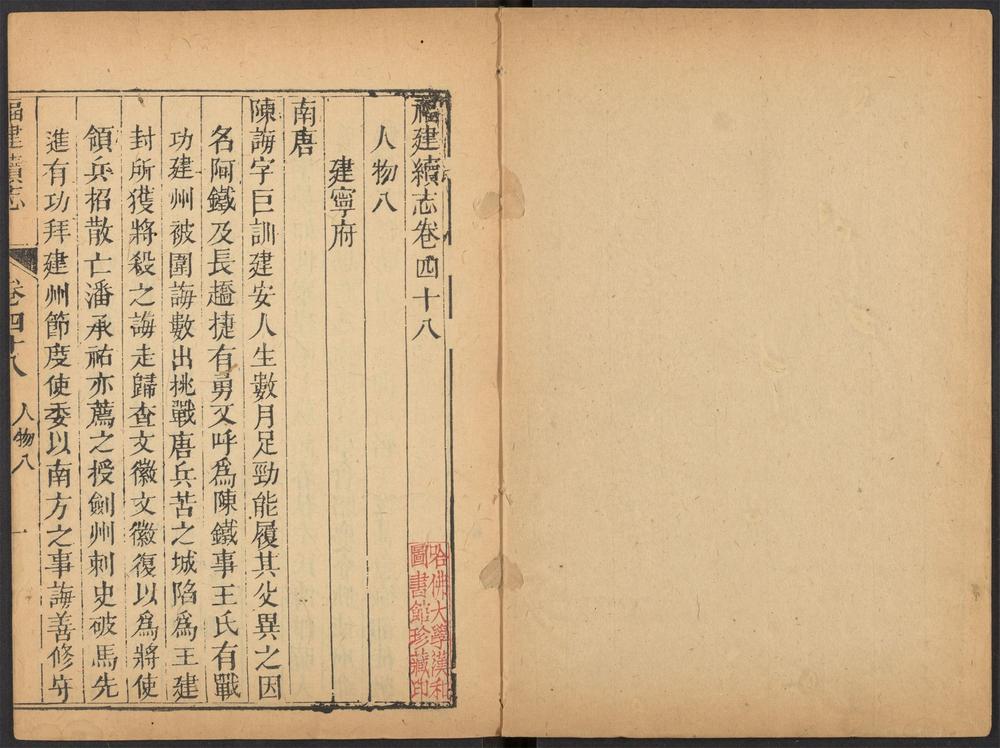 福建續志卷四十八
人物八
建寧府
南唐
陳誨字巨訓建安人生數月足勁能履其父異之因
名阿鐵及長趫捷有勇又呼爲陳鐵事王氏有戰
功建州被圍誨數出挑戰唐兵苦之城陷爲王建
封所獲將殺之誨走歸查文徽文徽復以爲將使
領兵招散亡潘承祐亦薦之授劍州刺史破馬先
進有功拜建州節度使委以南方之事誨善修守
福建續志
卷四十八
人物八
一
哈佛大學漢和
圖書館珍藏印